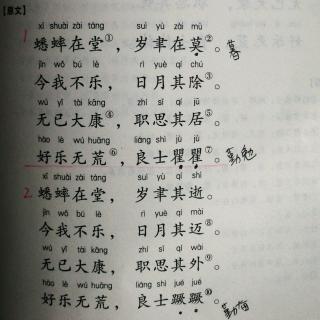 【原文】
xī shuài zài táng suì yù zài mù
1 蟋蟀在堂①，岁聿在莫②。暮
jīn wǒ bú lè rì yuè qí chú
今我不乐，日月其除③。
wú yǐ tài kāng zhí sī qí jū
无已大康④，职思其居⑤。
hào lè wú huāng liáng shì jù jù
好乐无荒⑥，良士瞿瞿⑦。勤勉
xī shuài zài táng suì yù qí shì
2. 蟋蟀在堂，岁聿其逝。
jīn wǒ bú lè rì yuè qí mài
今我不乐，日月其迈⑧。
wú yǐ tài kāng zhí sī qí wài
无已大康，职思其外⑨。
hào lè wú huāng liáng shì jué jué
好乐无荒，良士蹶蹶⑩。